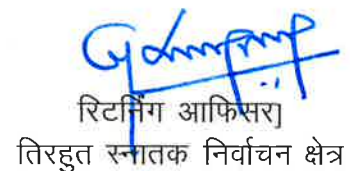 रिटर्निंग आफिसर]
तिरहुत स्नातक निर्वाचन क्षेत्र